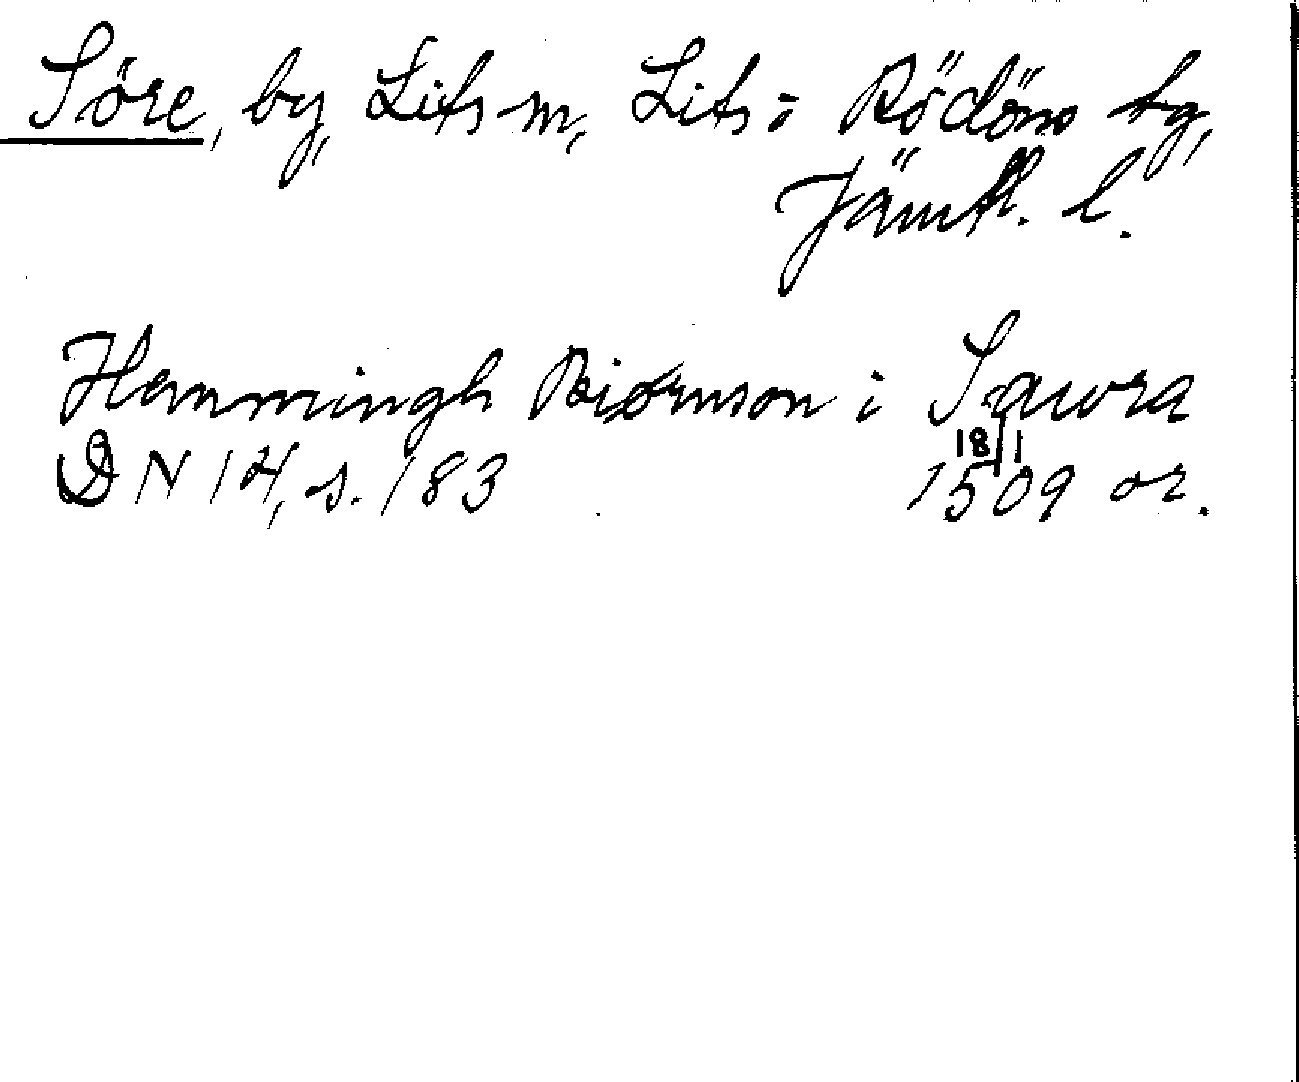 Söre, by, Lits sn, Lits o Rödöns tg,
Jämtl. l.
Hemmingh Biørnson i Sawra
DN 14, s. 183 18/1 1509 or.